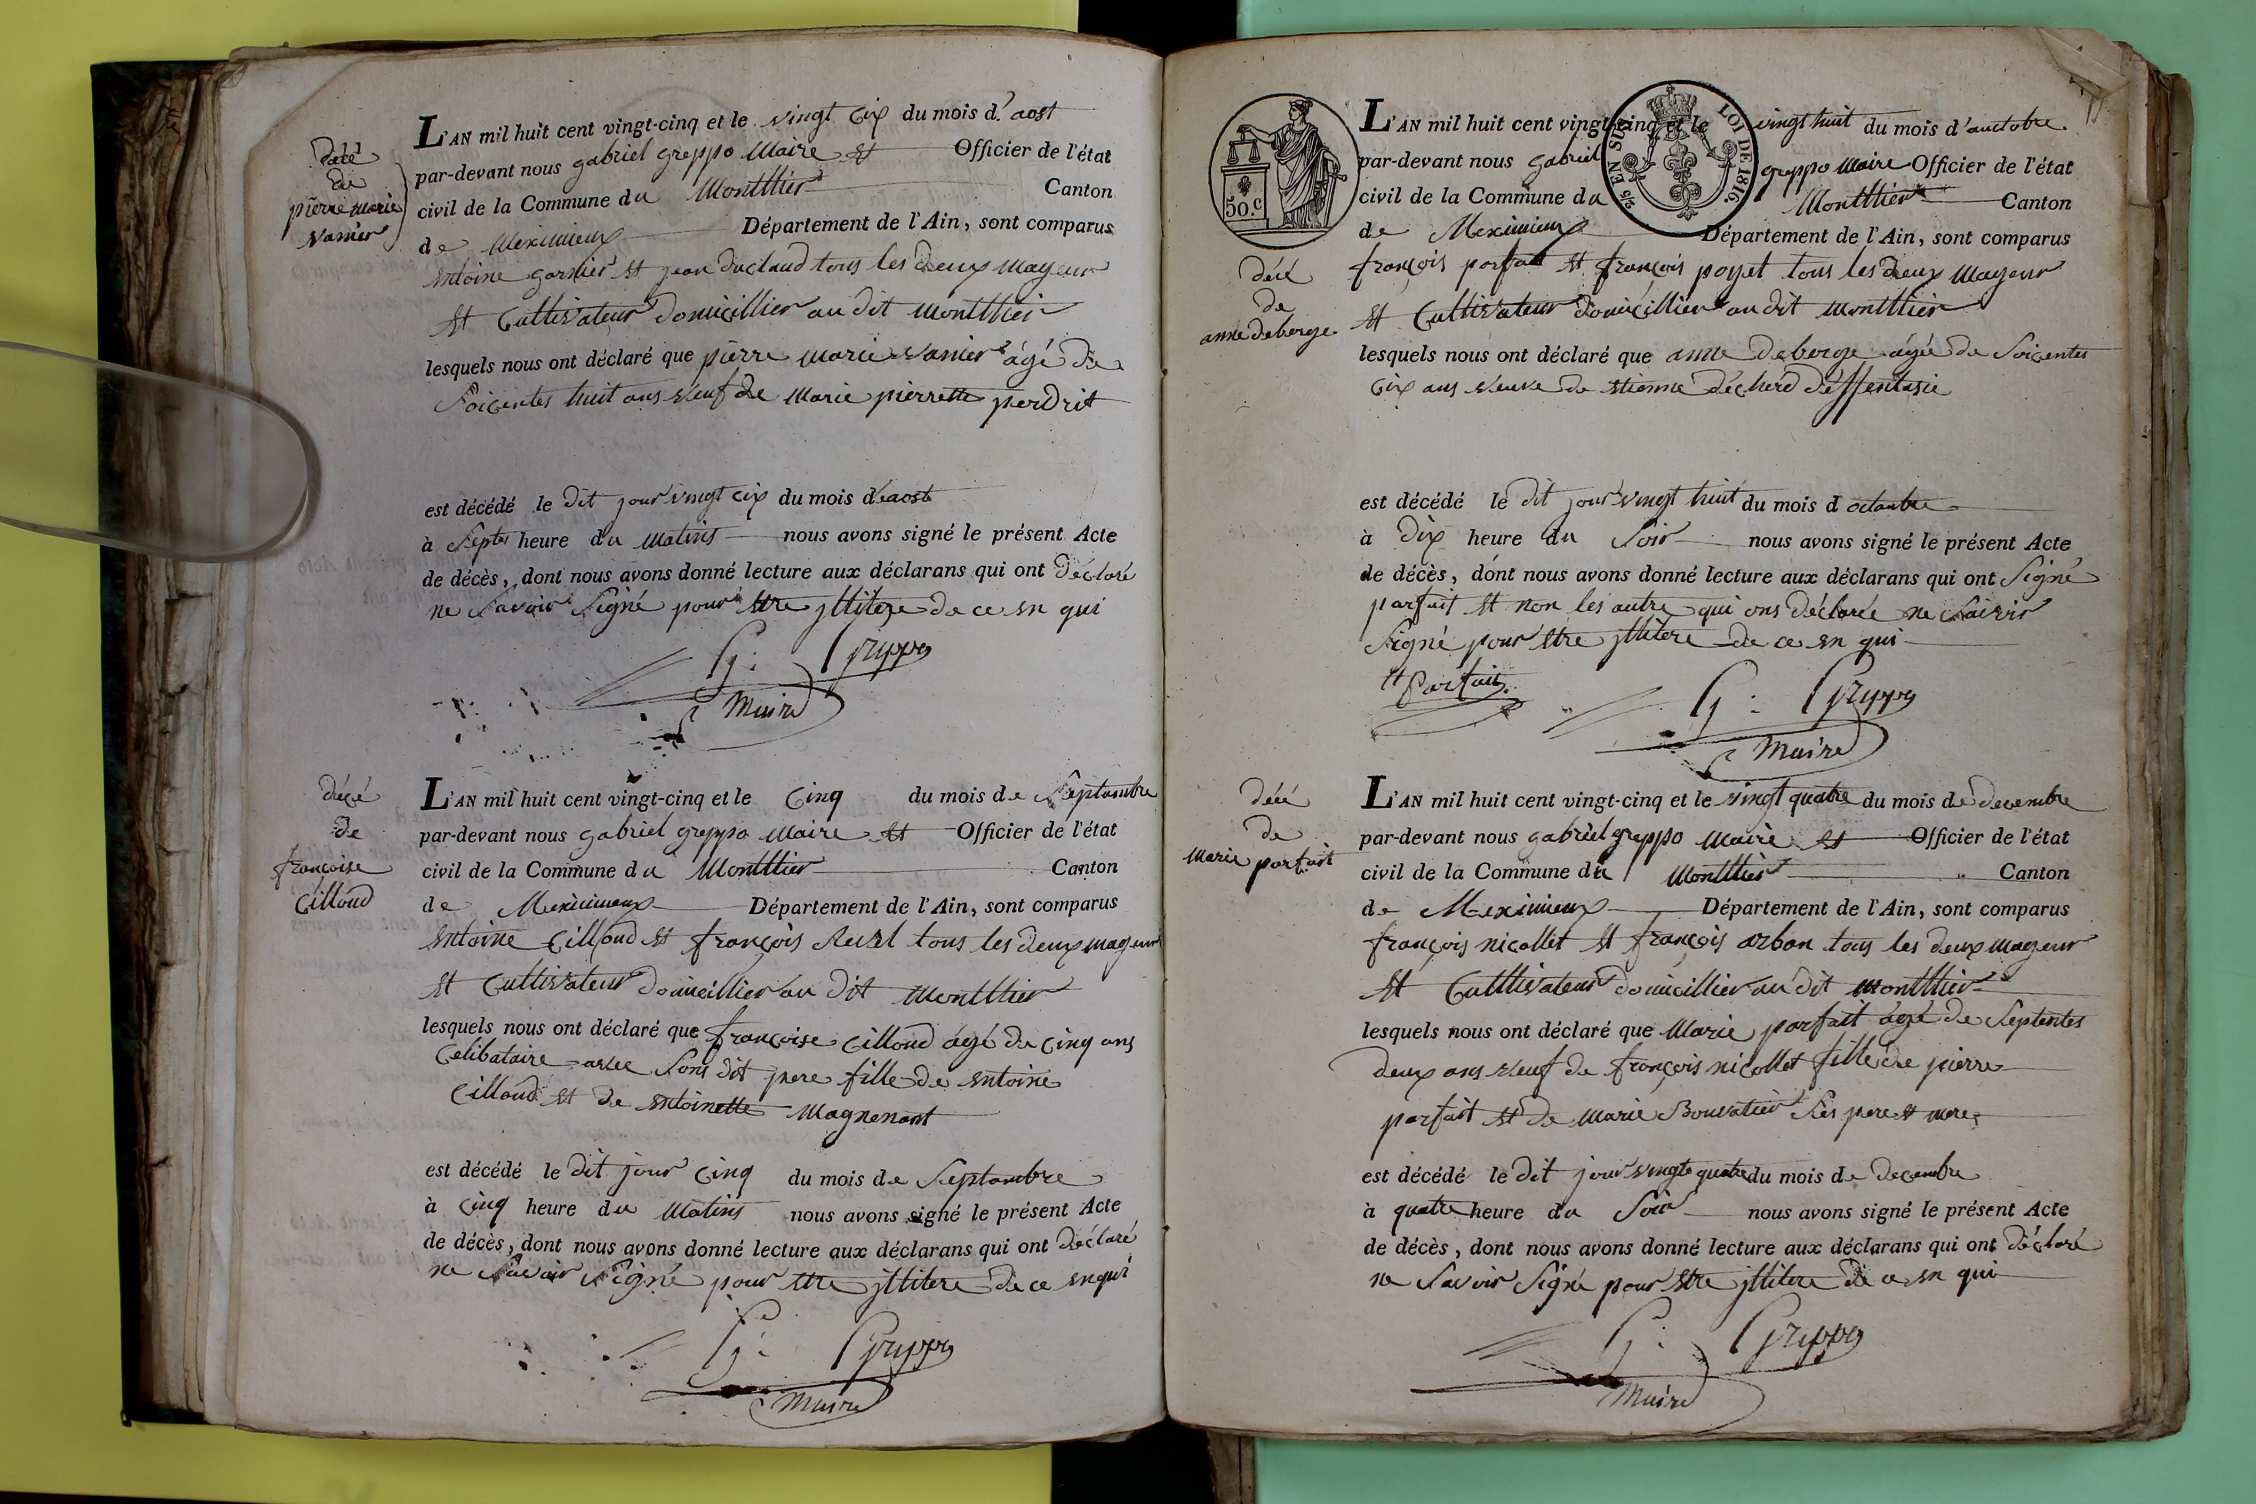 décé
de
pierre Marie
Vanier
L'AN mil huit cent vingt-cinq et le vingt cix du mois d'aost
par-devant nous gabriel greppo Maire et Officier de l'état
civil de la Commune du Montllier Canton
de Meximieux Département de l'Ain, sont comparus
entoine garnier et jean duclaud tous les deux mageur
et Cultivateur domicillier au dit Montllier
lesquels nous ont déclaré que pierre marie Vanier âgé de
soicentes huit ans veuf de Marie pierrette perdrit
est décédé le dit jour vingt cix du mois d'eaost
à septes heure du matins nous avons signé le présent Acte
de décès, dont nous avons donné lecture aux déclarans qui ont déclaré
ne savoir signé pour etre jllitere de ce en qui
G: Greppo
Maire
décé
de
françoise
Cilloud
L'AN mil huit cent vingt-cinq et le cinq du mois de septambre
par-devant nous gabriel greppo Maire et Officier de l'état
civil de la Commune du Montllier Canton
de Meximieux Département de l'Ain, sont comparus
entoine Cilloud et françois revel tous les deux mageur
et Cultivateur domicillier au dit Montllier
lesquels nous ont déclaré que françoise Cilloud âgé de cinq ans
Celibataire avec sons dit pere fille de entoine
Cilloud et de entoinette Magnenant
est décédé le dit jour cinq du mois de septambre
à cinq heure du matins nous avons signé le présent Acte
de décès, dont nous avons donné lecture aux déclarans qui ont déclaré
ne savoir signé pour etre jllitere de ce en qui
G: Greppo
Maire
50.c
2/5 EN SUS
LOI DE 1816
décé
de
anne deberge
L'AN mil huit cent vingt-cinq et le vingt huit du mois d'auctobre
par-devant nous gabriel greppo Maire Officier de l'état
civil de la Commune du Montllier Canton
de Meximieux Département de l'Ain, sont comparus
françois parfait et françois poyet tous les deux mageur
et Cultivateur domicillier au dit Montllier
lesquels nous ont déclaré que anne deberge âgé de soicentes
cix ans veuve de etienne décherd
est décédé le dit jour vingt huit du mois d octaubre
à dix heure du soir nous avons signé le présent Acte
de décès, dont nous avons donné lecture aux déclarans qui ont signé
parfait et non les autre qui ons déclarée ne savoir
signé pour etre jllitere de ce en qui
Parfait
G: Greppo
Maire
décé
de
Marie parfait
L'AN mil huit cent vingt-cinq et le vingt quatre du mois de decembre
par-devant nous gabriel greppo Maire et Officier de l'état
civil de la Commune du Montllier Canton
de Meximieux Département de l'Ain, sont comparus
françois nicollet et françois arban tous les deux mageur
et Culltivateur domicillier au dit Montllier
lesquels nous ont déclaré que Marie parfait âgé de septentes
deux ans veuf de françois nicollet fille de pierre
parfait et de Marie Bouvatier ses pere et mere
est décédé le dit jour vingts quatre du mois de decembre
à quatre heure du soir nous avons signé le présent Acte
de décès, dont nous avons donné lecture aux déclarans qui ont déclaré
ne savoir signé pour etre jllitere de ce en qui
G: Greppo
Maire